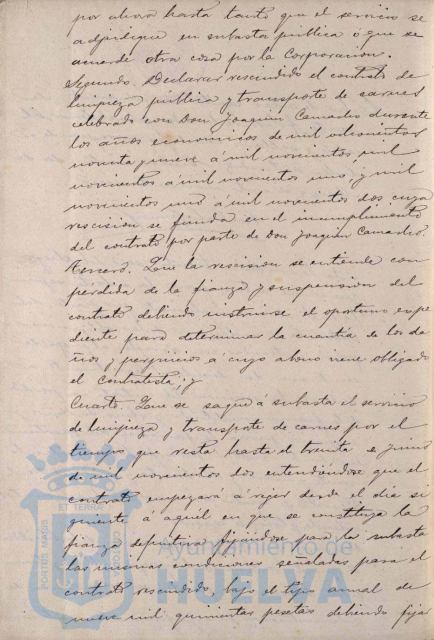 por ahora hasta tanto que el servicio se
adjudique en subasta pública ó que se
acuerde otra cosa por la Corporacion.
Segundo. Declarar rescindido el contrato de
limpieza pública y transporte de carnes
celebrado con Don Joaquin Camacho durante
los años economicos de mil ochocientos
noventa y nueve á mil novecientos, mil
novecientos á mil novecientos uno, y mil
novecientos uno á mil novecientos dos cuya
rescision se funda en el incumplimiento
del contrato por parte de Don Joaquin Camacho.
Tercero. Que la rescision se entiende con
pérdida de la fianza y suspension del
contrato debiendo instruirse el oportuno espe
diente para determinar la cuantia de los da
ños y perjuicios á cuyo abono viene obligado
el contratista; y
Cuarto. Que se saque á subasta el servicio
de limpieza y transporte de carnes por el
tiempo que resta hasta el treinta de Junio
de mil novecientos dos entendiéndose que el
contrato empezará á regir desde el dia si
guiente á aquél en que se constituya la
fianza definitiva fijándose para la subasta
las mismas condiciones señaladas para el
contrato rescindido, bajo el tipo anual de
nueve mil quinientas pesetas debiendo fijar
PORTUS MARIS ET TERRAE CUSTODIA
Ayuntamiento de
HUELVA